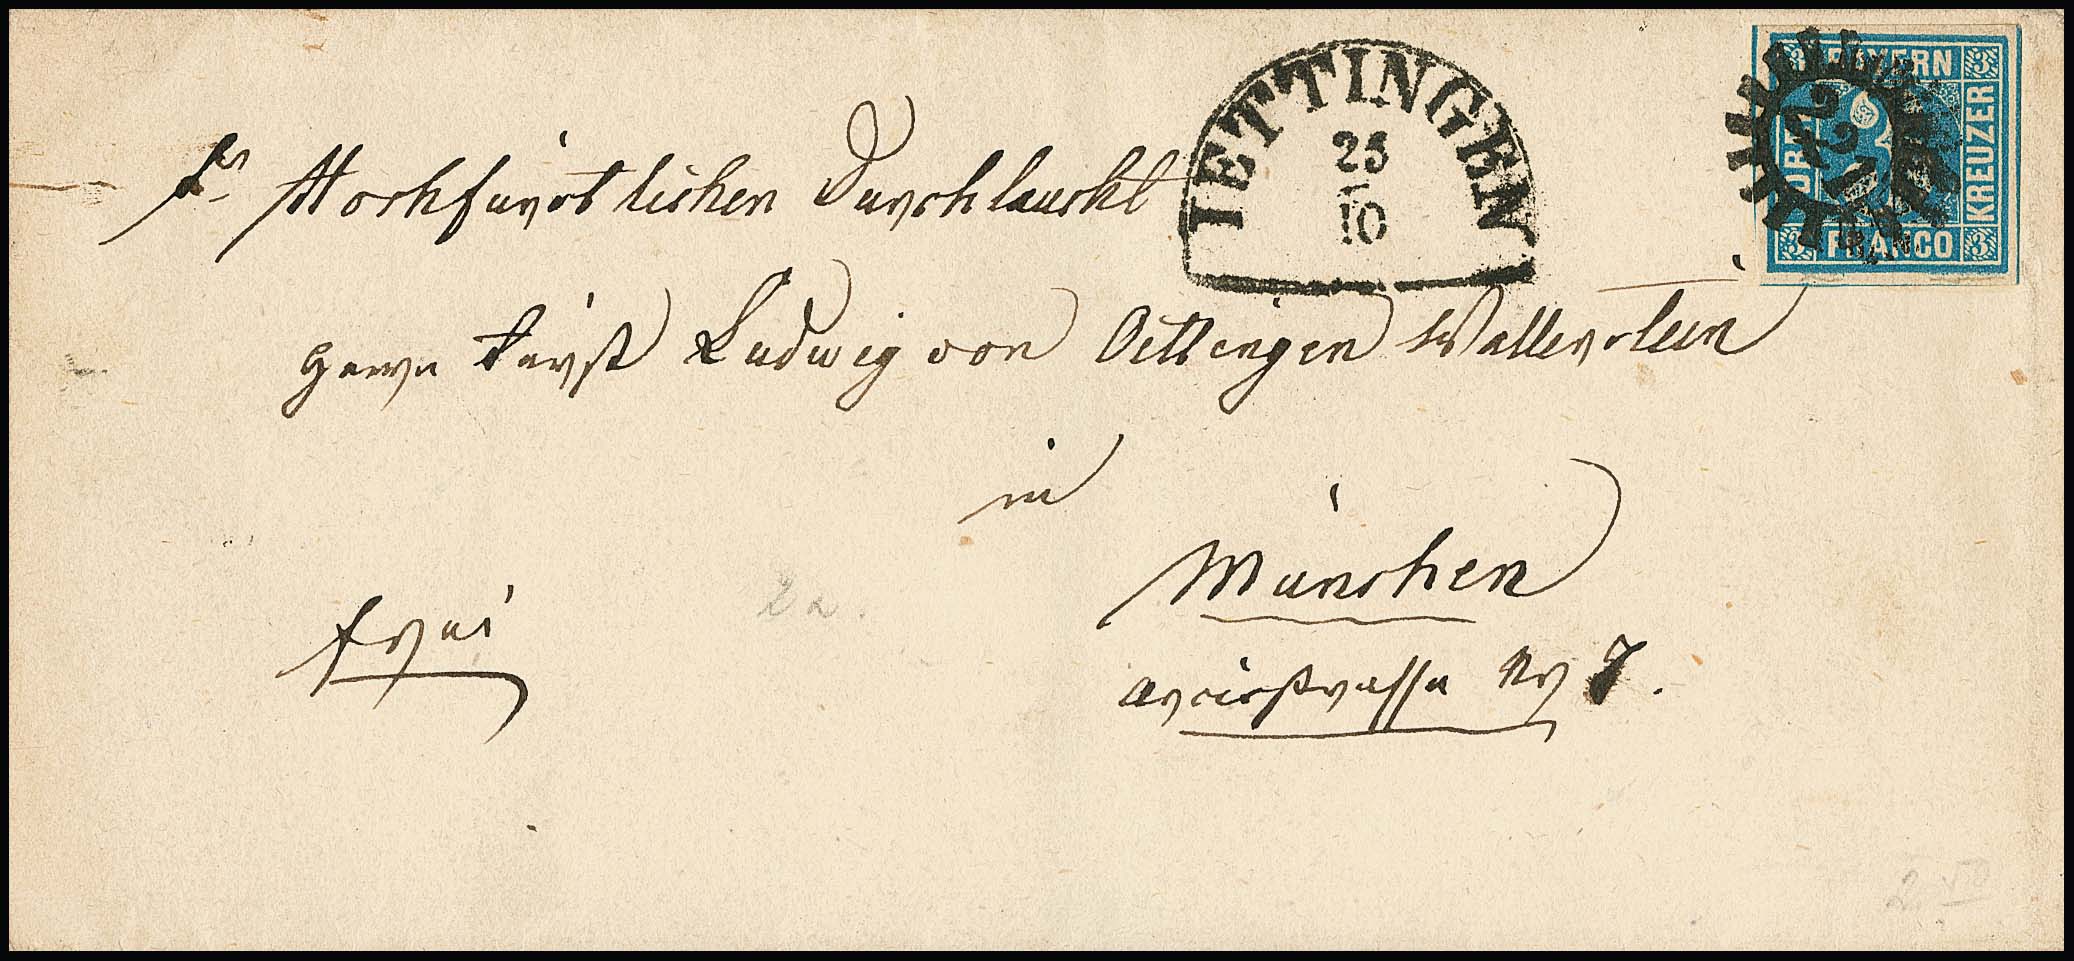 IETTINGEN
25
10
BAYERN
DREI
KREUZER
FRANCO
3 3 3
221
Sr Hochfürstlichen Durchlaucht
Herrn Fürst Ludwig von Oettingen Wallerstein
in
München
frei
2a.
Arcisstrasse Nr 7.